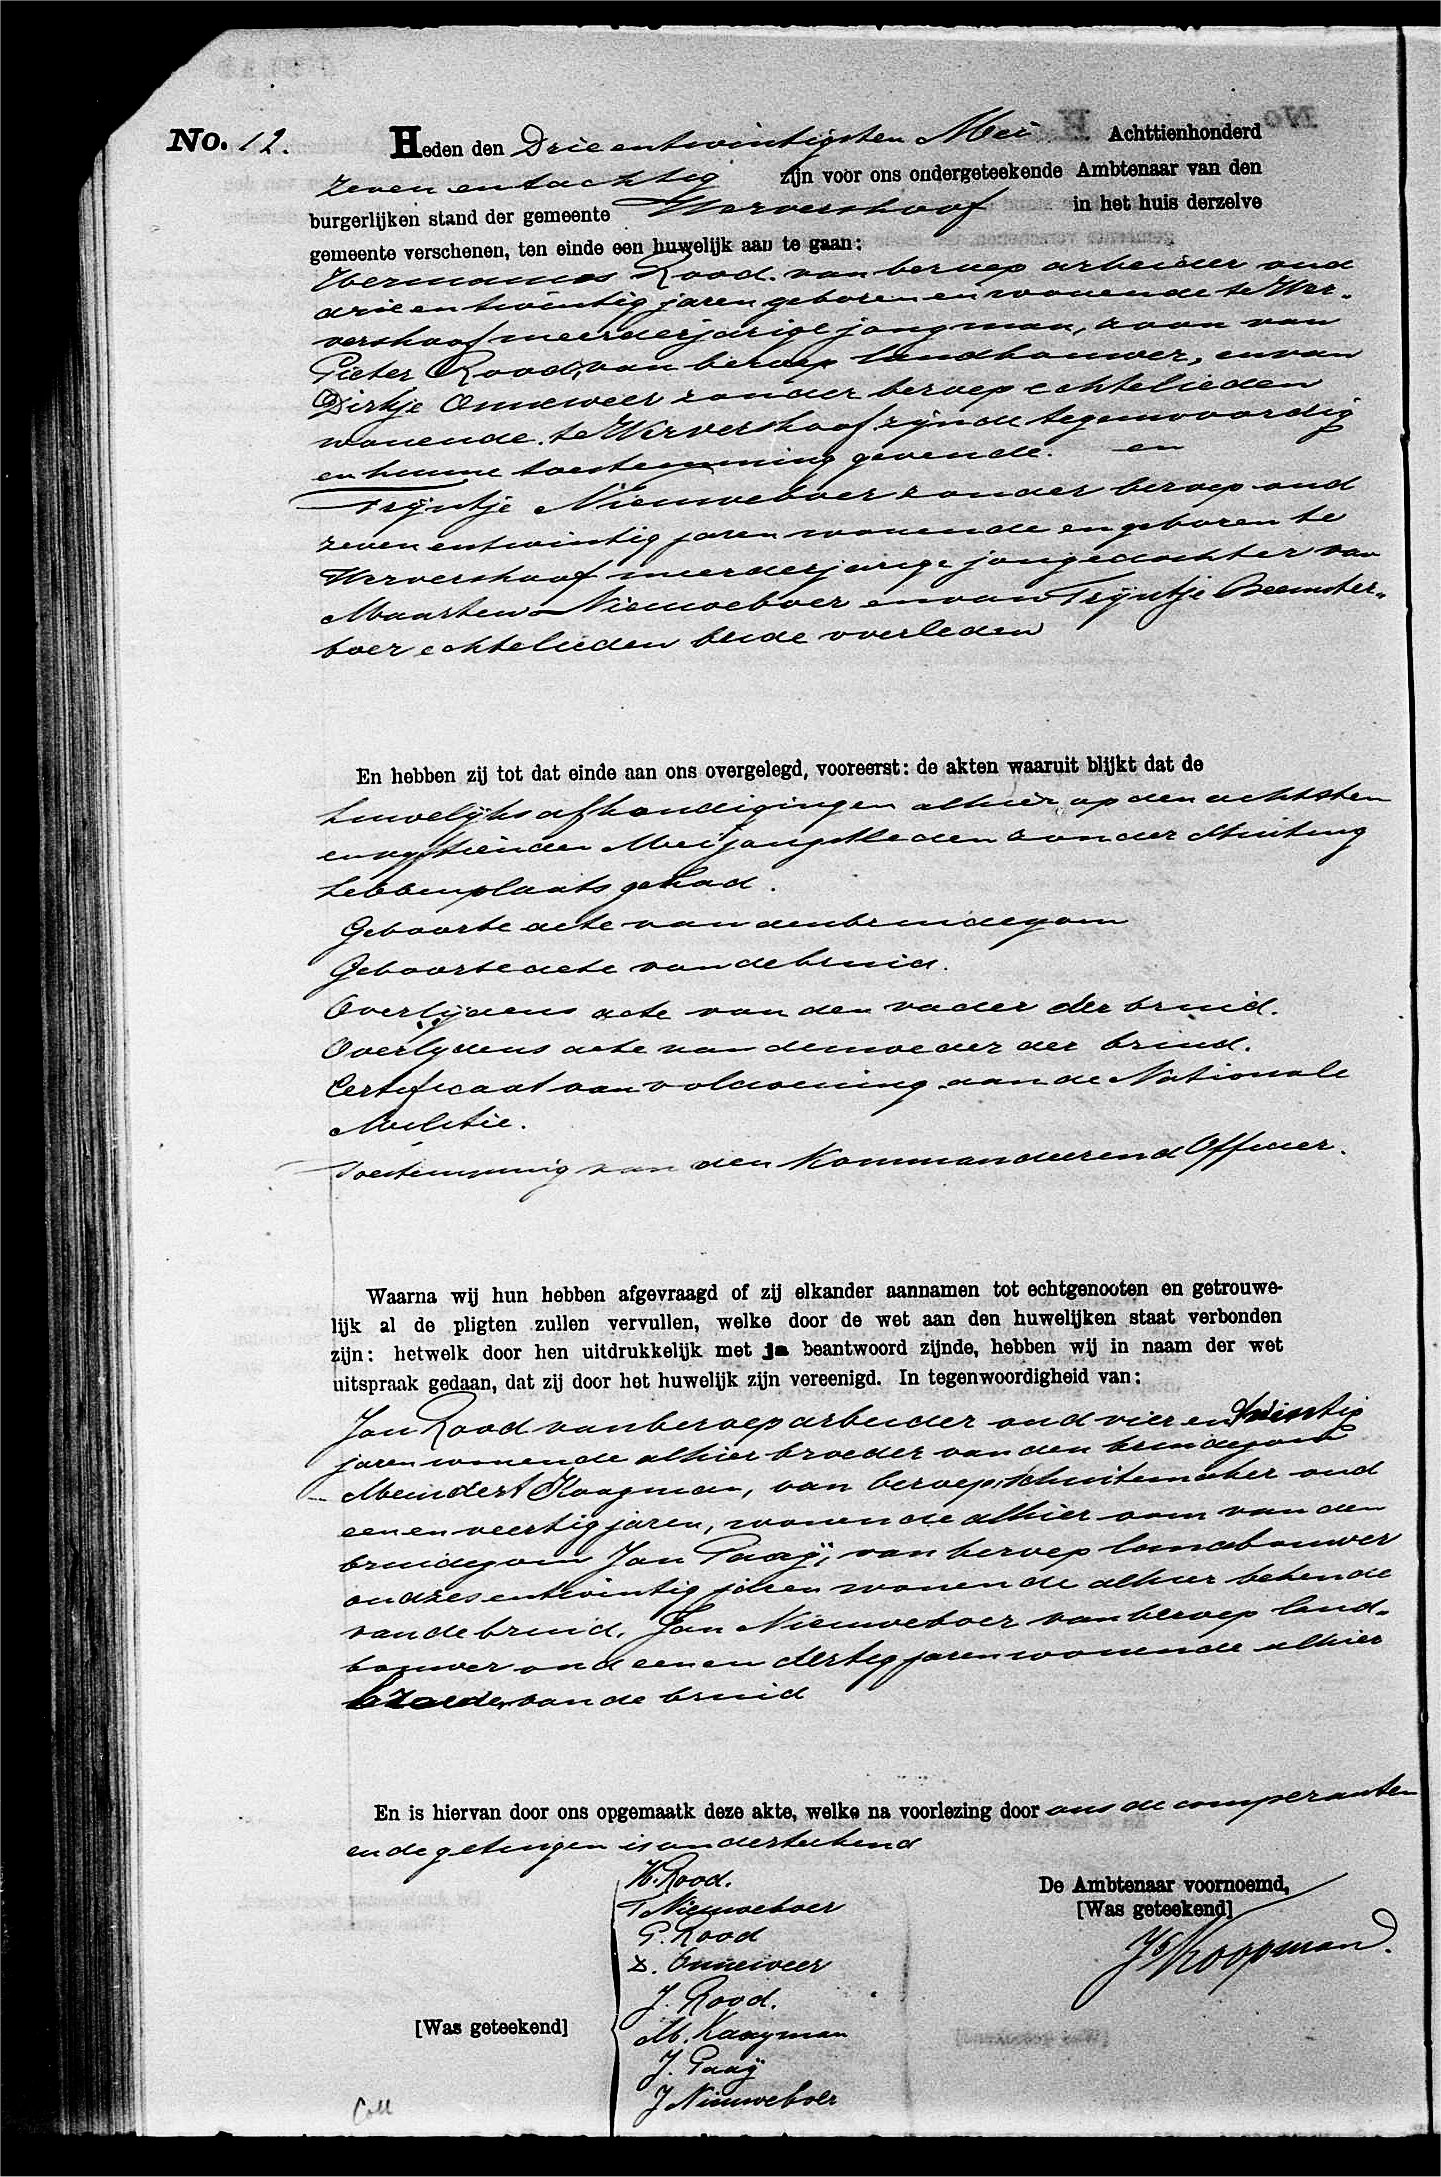 No. 12.
Heden den Drie entwintigsten Mei Achttienhonderd
zeven entachtig zijn voor ons ondergeteekende Ambtenaar van den
burgerlijken stand der gemeente Wervershoof in het huis derzelve
gemeente verschenen, ten einde een huwelijk aan te gaan:
Hermanus Rood. van beroep arbeider oud
drie entwintig jaren geboren en wonende te Wer-
vershoof meerderjarige jongman, zoon van
Pieter Rood, van beroep landbouwer, en van
Dirkje Onneweer zonder beroep echtelieden
wonende te Wervershoof zijnde tegenwoordig
en hunne toestemming gevende. en
Trijntje Nieuweboer zonder beroep oud
zeven entwintig jaren wonende en geboren te
Wervershoof meerderjarige jongedochter van
Maarten Nieuweboer en van Trijntje Beemster-
boer echtelieden beide overleden
En hebben zij tot dat einde aan ons overgelegd, vooreerst: de akten waaruit blijkt dat de
huwelijks afkondigingen alhier op den achtsten
en vijftienden Mei jongstleden zonder stuiting
hebben plaats gehad.
Geboorte acte van den bruidegom
Geboorte acte van de bruid.
Overlijdens acte van den vader der bruid.
Overlijdens acte van de moeder der bruid.
Certificaat van voldoening aan de Nationale
Militie.
Toestemming van den Kommandeerend Officier.
Waarna wij hun hebben afgevraagd of zij elkander aannamen tot echtgenooten en getrouwe-
lijk al de pligten zullen vervullen, welke door de wet aan den huwelijken staat verbonden
zijn: hetwelk door hen uitdrukkelijk met ja beantwoord zijnde, hebben wij in naam der wet
uitspraak gedaan, dat zij door het huwelijk zijn vereenigd. In tegenwoordigheid van:
Jan Rood van beroep arbeider oud vier en twintig
jaren wonende alhier broeder van den bruidegom
Meindert Kaagman, van beroep schuitemaker oud
een en veertig jaren, wonende alhier oom van den
bruidegom Jan Paaij, van beroep landbouwer
oud zes entwintig jaren wonende alhier bekende
van de bruid, Jan Nieuweboer van beroep land-
bouwer oud een en dertig jaren wonende alhier
broeder van de bruid
En is hiervan door ons opgemaatk deze akte, welke na voorlezing door ons de comperanten
en de getuigen is onderteekend
H. Rood.
T Nieuweboer
P. Rood
D. Onneweer
J. Rood.
M. Kaagman
J. Paaij
J Nieuweboer
[Was geteekend]
De Ambtenaar voornoemd,
[Was geteekend]
Koopman.
Coll